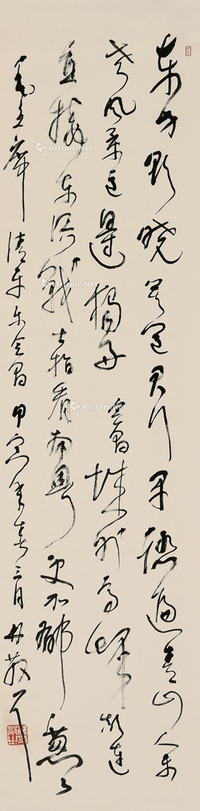 东方欲晓莫道君行早踏遍青山人未
老风景这边独好会昌城外高峰颠连
直接东溟战士指看南粤更加郁郁葱葱
毛主席清平乐会昌甲寅年春三月林散耳